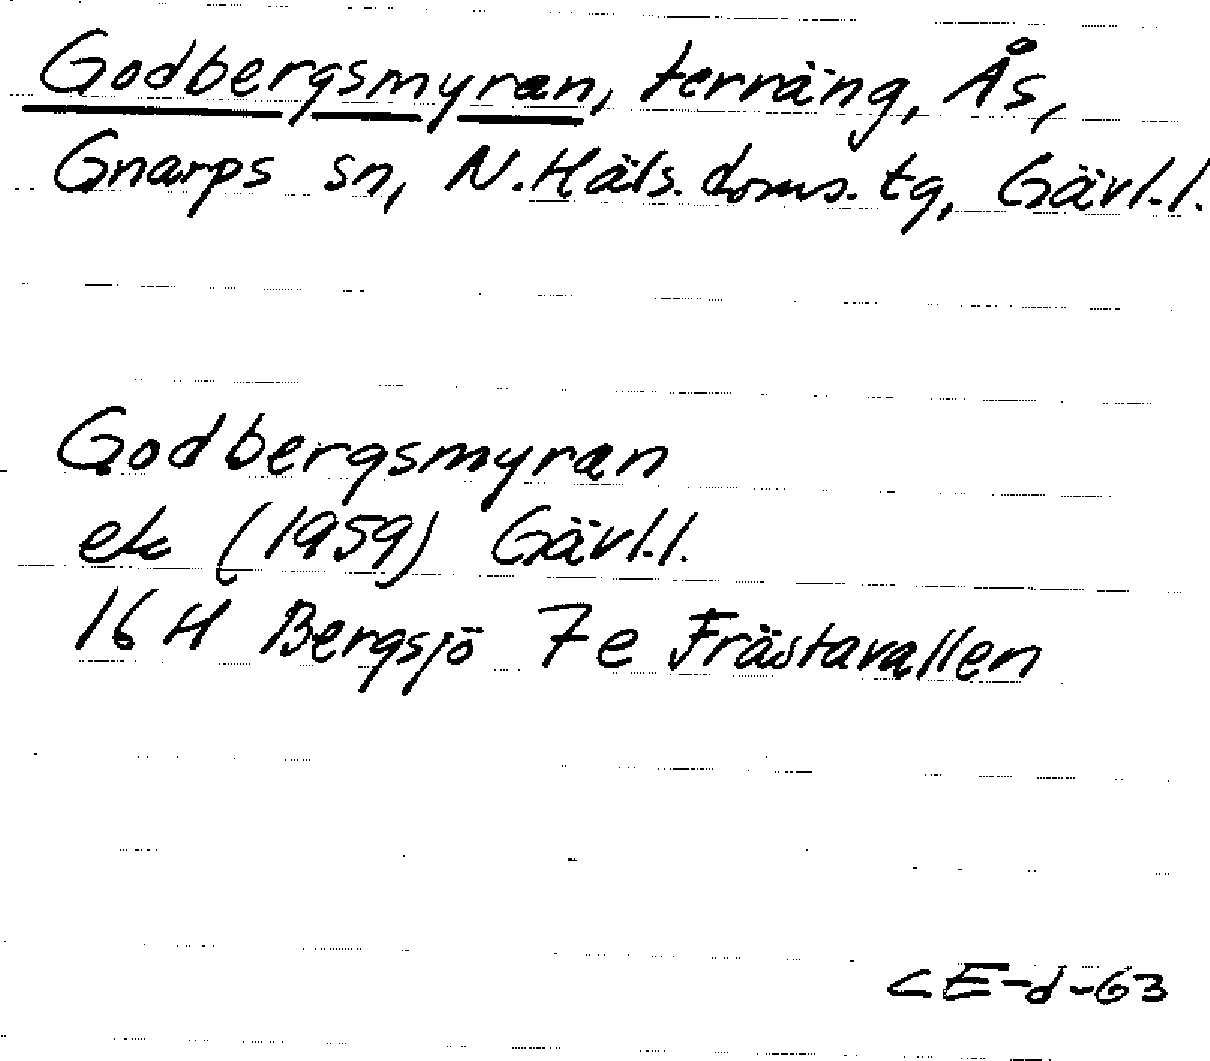 Godbergsmyran, terräng, Ås,
Gnarps sn, N. Häls. doms. tg, Gävl.l.
Godbergsmyran
ek (1959) Gävl.l.
16 H Bergsjö 7e Frästavallen
CE-d-63